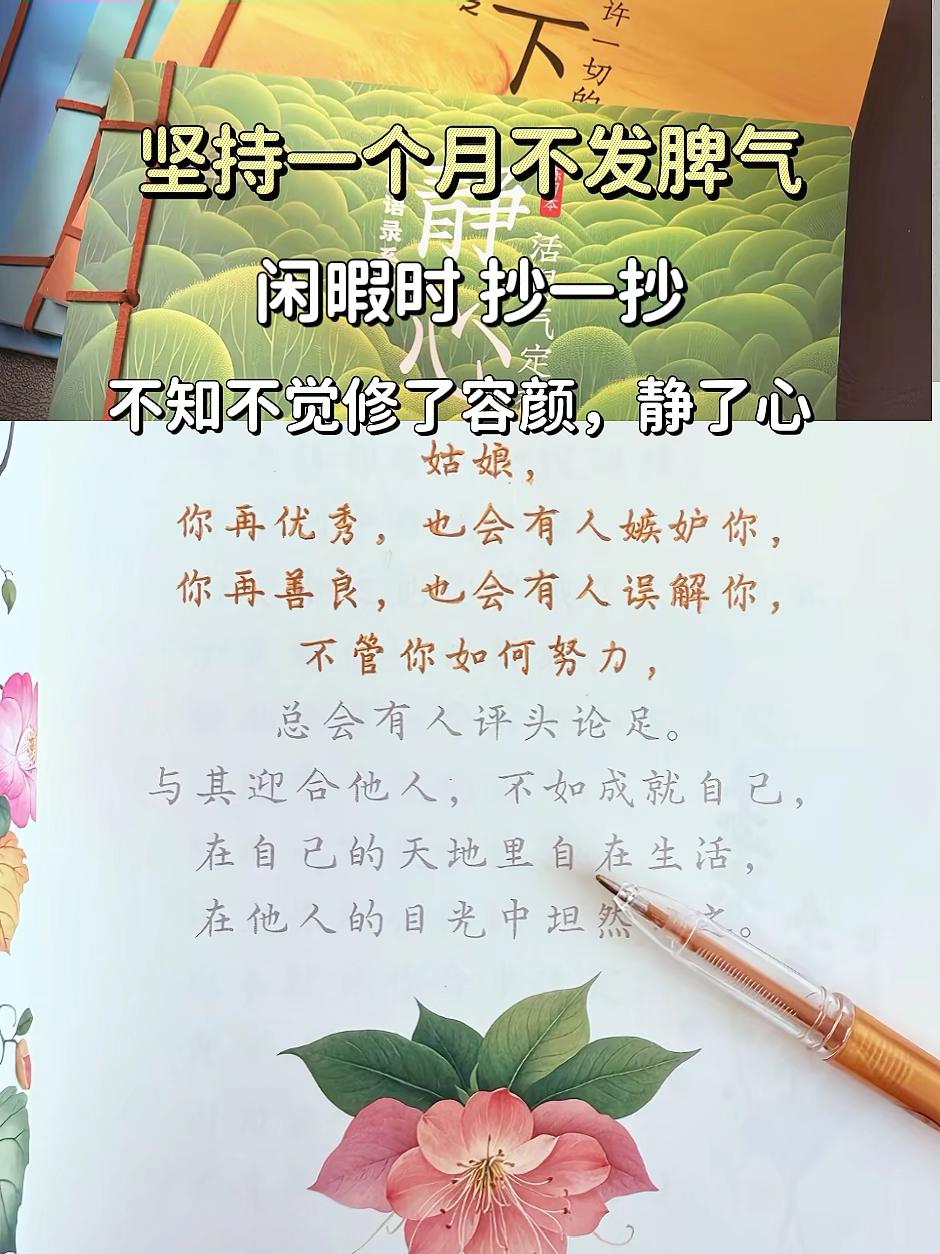 许一切的
下
坚持一个月不发脾气
静心
语录
活 气定
闲暇时 抄一抄
不知不觉修了容颜，静了心
姑娘，
你再优秀，也会有人嫉妒你，
你再善良，也会有人误解你，
不管你如何努力，
总会有人评头论足。
与其迎合他人，不如成就自己，
在自己的天地里自在生活，
在他人的目光中坦然 之。